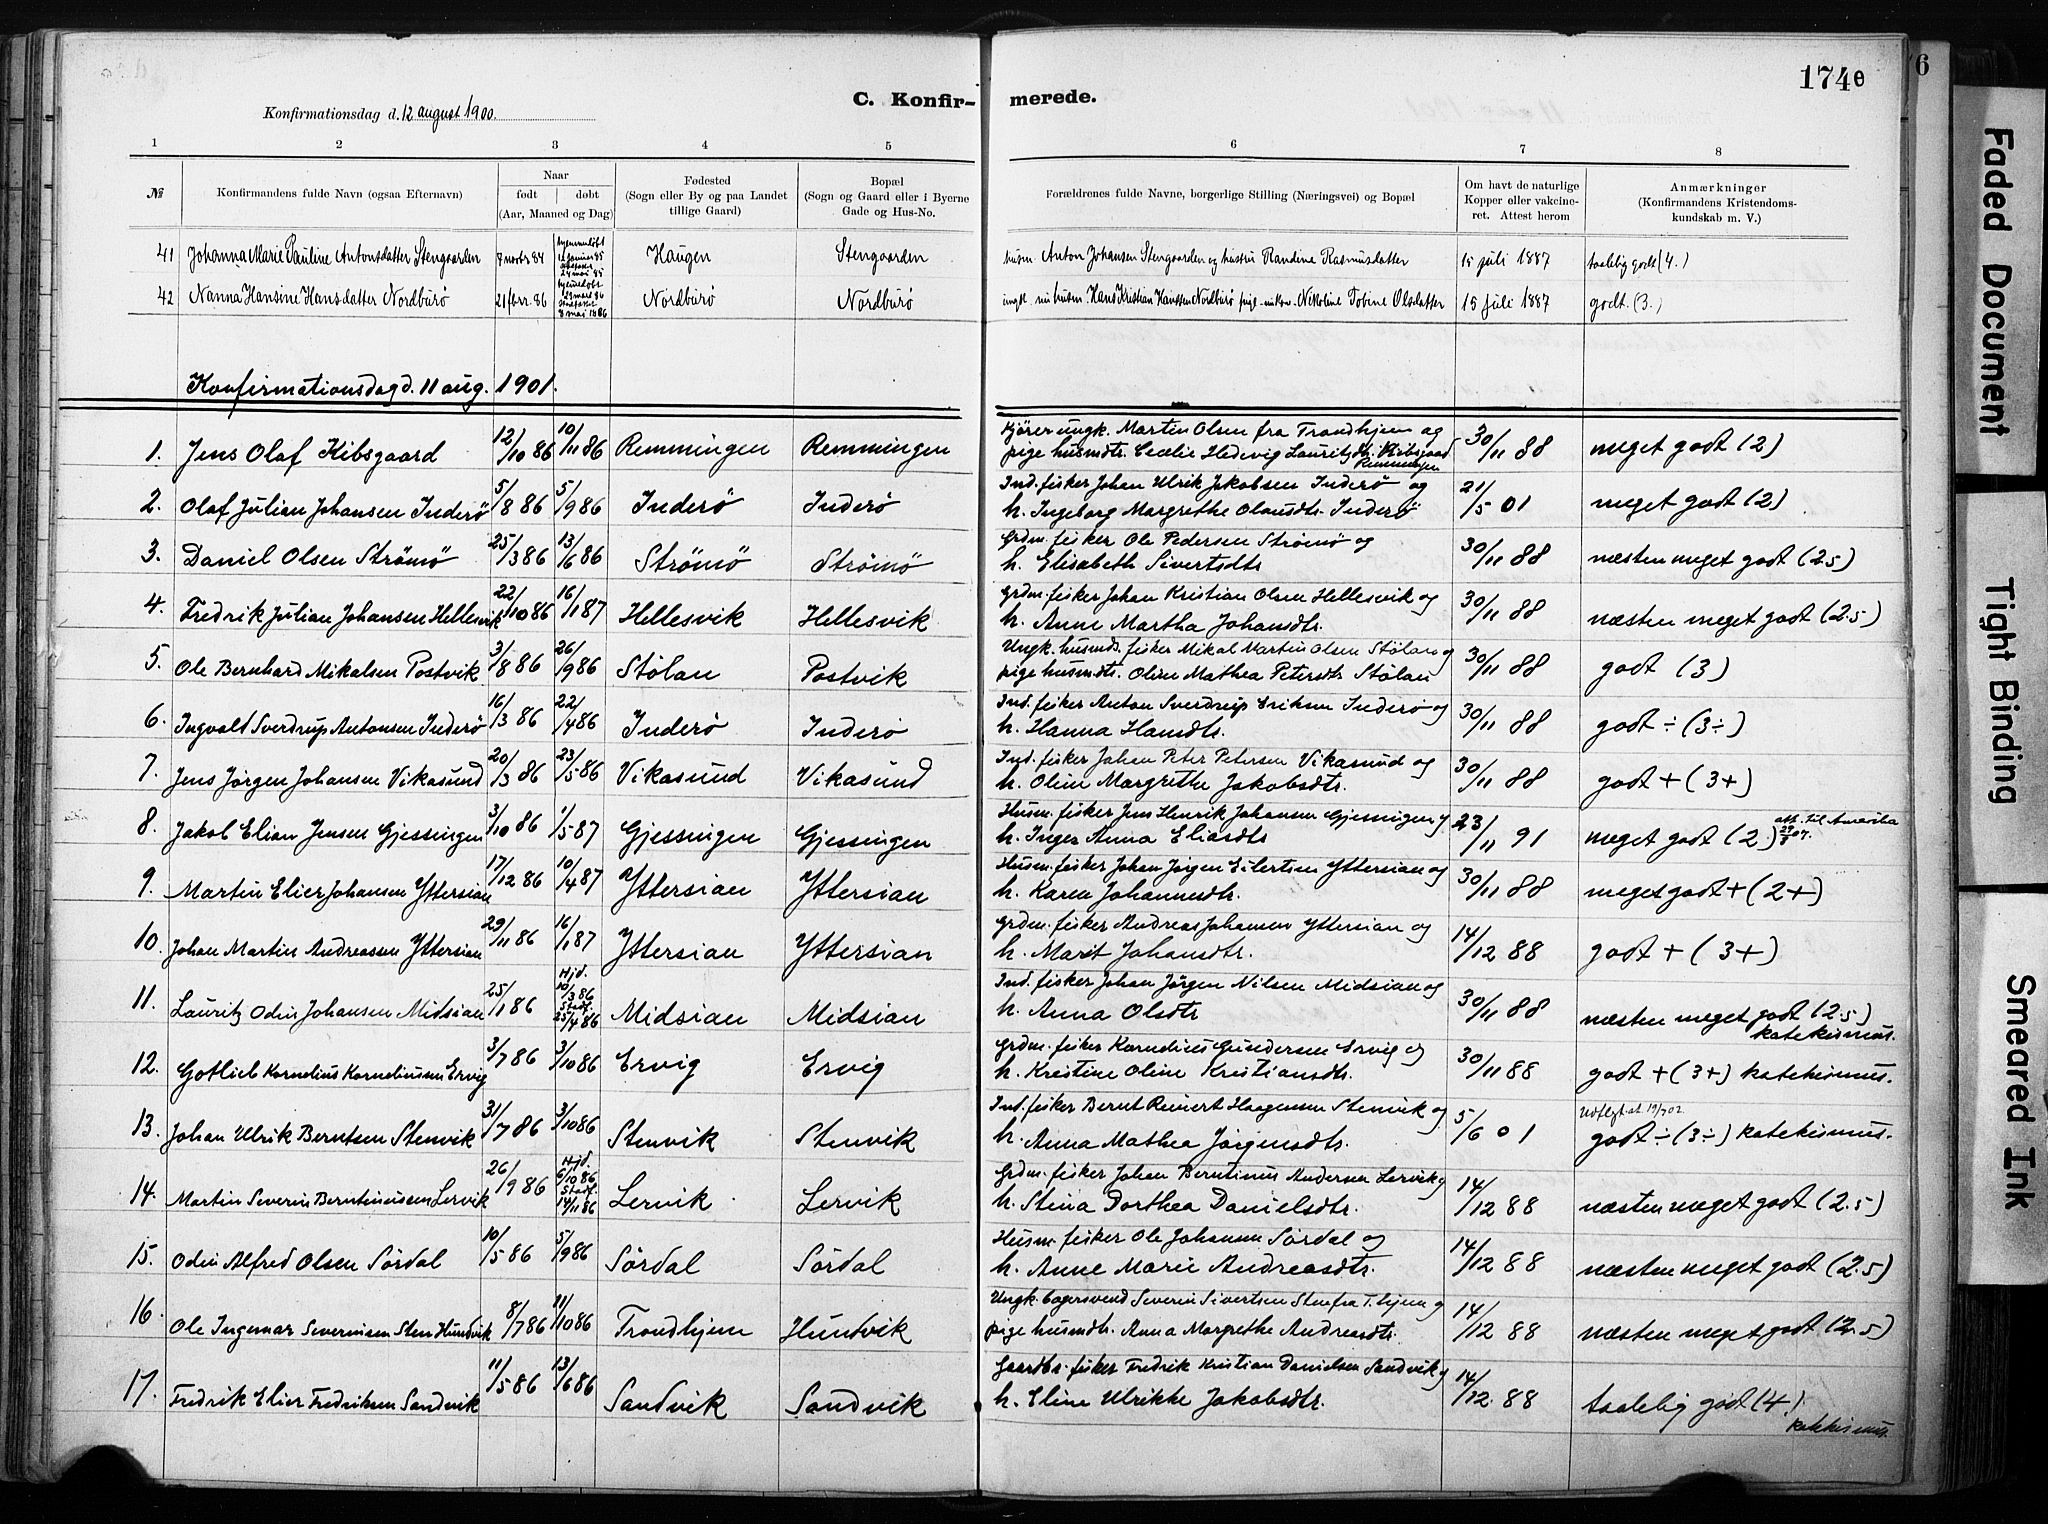 C. Konfirmerede.
1740
6
Konfirmationsdag d. 12 august 1900.
1 2 3 4 5 6 7 8
№
Konfirmandens fulde Navn (ogsaa Efternavn)
Naar
født døbt
(Aar, Maaned og Dag)
Fødested
(Sogn eller By og paa Landet
tillige Gaard)
Bopæl
(Sogn og Gaard eller i Byerne
Gade og Hus-No.
Forældrenes fulde Navne, borgerlige Stilling (Næringsvei) og Bopæl
Om havt de naturlige
Kopper eller vakcine-
ret. Attest herom
Anmærkninger
(Konfirmandens Kristendoms-
kundskab m. V.)
41 Johanna Marie Pauline Antonsdatter Stengaarden 7 novbr 84 Haugen Stengaarden husm. Anton Johansen Stengaarden og hustru Randine Rasmusdatter 15 juli 1887 taalelig godt (4.)
42 Nanna Hansine Hansdatter Nordbürö 21 febr. 86 Nordbürö Nordbürö Hans Kristian Hanssen Nordbürö Nikoline Tobine Olsdatter 15 juli 1887 godt. (3.)
Konfirmationsdag d. 11 aug. 1901.
1. Jens Olaf Kibsgaard 12/10 86 10/11 86 Remmingen Remmingen Kjører ungk. Martin Olsen fra Trondhjem og
pige husmdtr. Cecelie Hedevig Lauritzdtr. Kibsgaard Remmingen 30/11 88 meget godt (2)
2. Olaf Julian Johansen Inderö 5/8 86 5/9 86 Inderö Inderö Ind. fisker Johan Ulrik Jakobsen Inderö og
h. Ingeborg Margrethe Olausdtr. Inderö 21/5 01 meget godt (2)
3. Daniel Olsen Strömö 25/3 86 13/6 86 Strömö Strömö Grdm. fisker Ole Pedersen Strömö og
h. Elisabeth Sivertsdtr 30/11 88 næsten meget godt (2.5)
4. Fredrik Julian Johansen Hellesvik 22/10 86 16/1 87 Hellesvik Hellesvik Grdm. fisker Johan Kristian Olsen Hellesvik og
h. Anne Martha Johansdtr. 30/11 88 næsten meget godt (2.5)
5. Ole Bernhard Mikalsen Postvik 3/8 86 26/9 86 Stölan Postvik Ungk. husmds. fisker Mikal Martin Olsen Stölan og
pige husmdtr. Oline Mathea Petersdtr Stölan 30/11 88 godt (3)
6. Ingvald Sverdrup Antonsen Inderö 16/3 86 22/4 86 Inderö Inderö Ind. fisker Anton Sverdrup Eriksen Inderö og
h. Hanna Hansdtr. 30/11 88 godt ÷ (3÷)
7. Jens Jörgen Johansen Vikasund 20/3 86 23/5 86 Vikasund Vikasund Ind. fisker Johan Peter Petersen Vikasund og
h. Oline Margrethe Jakobsdtr. 30/11 88 godt + (3+)
8. Jakob Elian Jensen Gjessingen 3/10 86 1/5 87 Gjessingen Gjessingen Husm. fisker Jens Henrik Johansen Gjessingen og
h. Inger Anna Eliasdtr 23/11 91 meget godt (2.) att. til Amerika
9. Martin Elier Johansen Yttersian 17/12 86 10/4 87 Yttersian Yttersian Husm. fisker Johan Jörgen Eilertsen Yttersian og
h. Karen Johannesdtr. 30/11 88 meget godt + (2+)
10. Johan Martin Andreassen Yttersian 29/11 86 16/1 87 Yttersian Yttersian Grdm. fisker Andreas Johansen Yttersian og
h. Marit Johansdtr. 14/12 88 godt + (3+)
11. Lauritz Odin Johansen Midsian 25/1 86 Hjd. 10/3 86 Stadf. 25/4 86 Midsian Midsian Ind. fisker Johan Jörgen Nilsen Midsian og
h. Anna Olsdtr 30/11 88 næsten meget godt (2.5)
katekismus.
12. Gotlieb Kornelius Korneliussen Ervig 3/7 86 3/10 86 Ervig Ervig Grdm. fisker Kornelius Gundersen Ervig og
h. Kristine Oline Kristiansdtr. 30/11 88 godt + (3+) katekismus.
13. Johan Ulrik Berntsen Stenvik 31/7 86 3/10 86 Stenvik Stenvik Ind. fisker Bernt Reinert Haagensen Stenvik og
h. Anna Mathea Jörgensdtr. 5/6 01 Udflyt. at. 19/7 02.
godt ÷ (3÷) katekismus.
14. Martin Severin Berntinussen Lervik 26/9 86 Hjd. 6/10 86 Stadf. 14/11 86 Lervik Lervik Grdm. fisker Johan Berntinus Andersen Lervik og
h. Stina Dorthea Danielsdtr. 14/12 88 næsten meget godt (2.5)
15. Odin Alfred Olsen Sördal 10/5 86 5/9 86 Sördal Sördal Husm. fisker Ole Johansen Sördal og
h. Anne Marie Andreasdtr. 14/12 88 næsten meget godt (2.5)
16. Ole Ingemar Severinsen Sten Hundvik 8/7 86 11/10 86 Trondhjem Hundvik Ungk. bagersvend Severin Sivertsen Sten fra T.hjem og
pige husmdtr. Anna Margrethe Andreasdtr. 14/12 88 næsten meget godt (2.5)
17. Fredrik Elier Fredriksen Sandvik 11/5 86 13/6 86 Sandvik Sandvik Gaardbr. fisker Fredrik Kristian Danielsen Sandvik og
h. Eline Ulrikke Jakobsdtr. 14/12. 88 taalelig godt (4)
katekismus.
Faded Document
Tight Binding
Smeared Ink